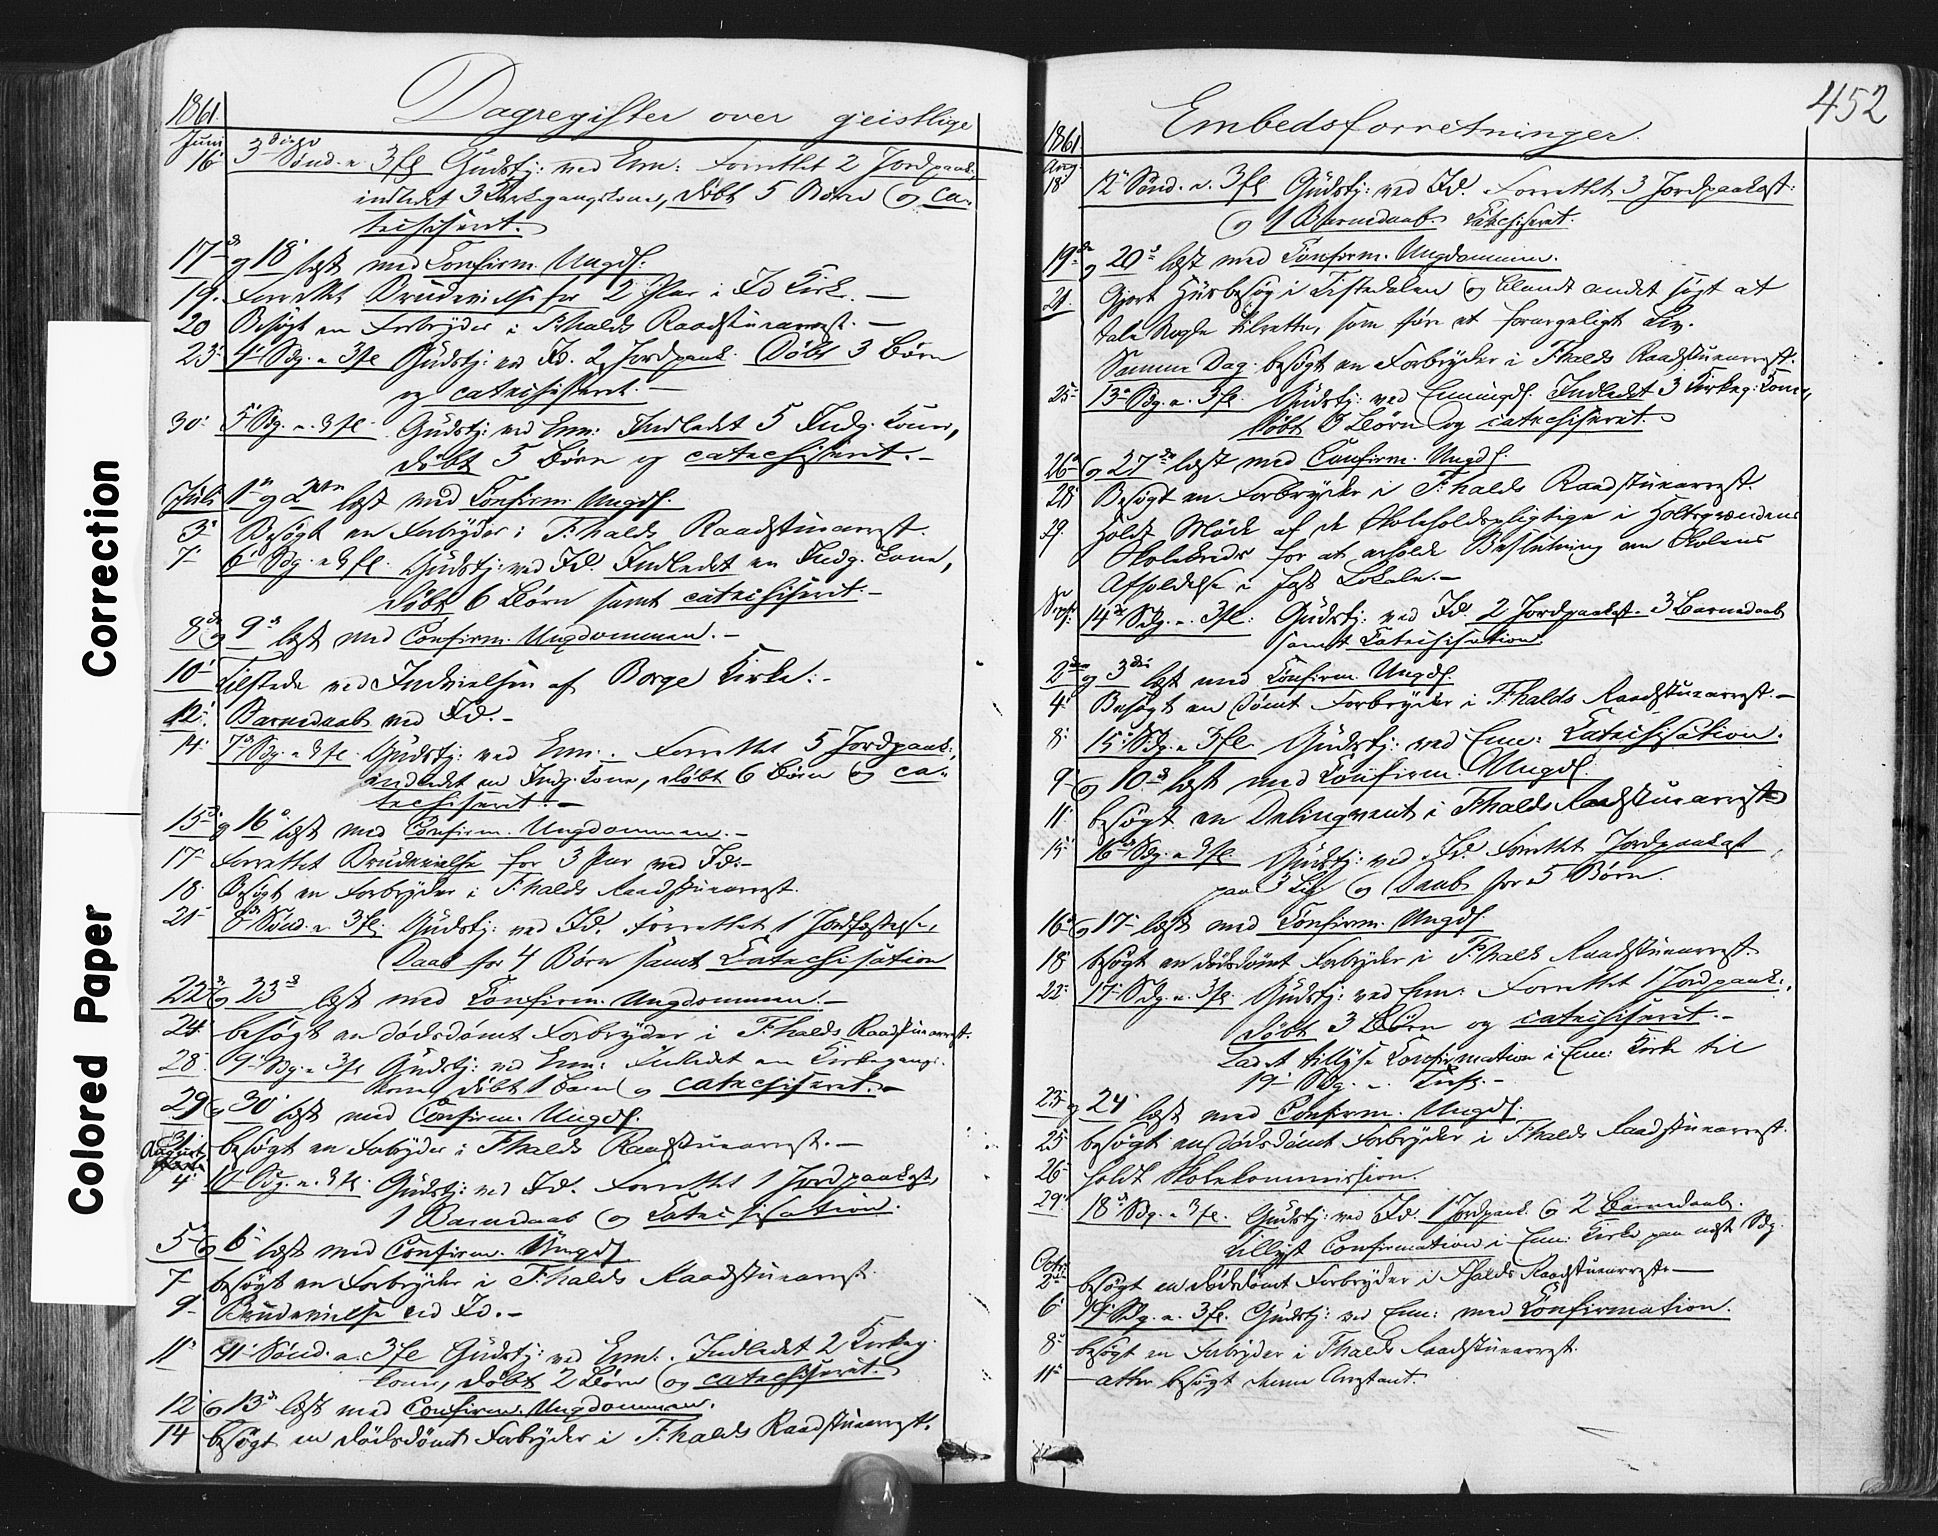 Correction
Colored Paper
1861. Dagregister over geistlige
Juni 16 3die Sønd. e. 3fl Gudstj: ved Enn: Forrettet 2 Jordpaak.
indledet 3 Kirkegangskoner, døbt 5 Børn og ca-
techiseret.
17de og 18' læst med Confirm. Ungd:
19. Forrettet Brudevielse for 2 Par i Id Kirke. —
20 Besøgt en Forbryder i F:halds Raadstuearrest. —
23' 4' Sdg. e. 3fl Gudstj: ved Id. 2 Jordpaak. Døbt 3 Børn
og catechiseret. —
30' 5' Sdg. e. 3fl. Gudstj: ved Enn: Indledet 5 Indg. Koner,
døbt 5 Børn og catechiseret. —
Juli 1ste og 2den læst med Confirm. Ungd:
3' Besøgt en Forbryder i F:halds Raadstuearrest.
7' 6' Sdg. e. 3fl. Gudstj: ved Id. Indledet en Indg. Kone,
døbt 6 Børn samt catechiseret. —
8de og 9de læst med Confirm. Ungdommen. —
10' Tilstede ved Indvielsen af Borge Kirke. —
12' Barnedaab ved Id. —
14' 7de Sdg. e. 3fl. Gudstj: ved Enn: Forrettet 5 Jordpaak.,
indledet en Indg. Kone, døbt 6 Børn og ca-
techiseret. —
15de og 16' læst med Confirm. Ungdommen. —
17' Forrettet Brudevielse for 3 Par ved Id. —
18' Besøgt en Forbryder i F:halds Raadstuearrest.
21' 8de Sønd. e. 3fl. Gudstj: ved Id. Forrettet 1 Jordfæstelse,
Daab for 4 Børn samt Catechisation
22de og 23de læst med Confirm. Ungdommen. —
24' besøgt en dødsdømt Forbryder i F:halds Raadstuearrest.
28' 9' Sdg. e. 3fl Gudstj: ved Enn: Indledet en Kirkegangs-
kone, døbt 1 Barn og catechiseret. —
29 og 30' læst med Confirm. Ungd:
31' besøgt en Forbryder i F:halds Raadstuearrest. —
August
4' 10' Sdg. e. 3fl. Gudstj: ved Id. Forrettet 1 Jordpaakast,
1 Barnedaab og Catechisation.
5de og 6' læst med Confirm. Ungd:
7' besøgt en Forbryder i F:halds Raadstuearrest
9' Brudevielse ved Id. —
11' 11' Sønd. e. 3fl Gudstj: ved Enn: Indledet 2 Kirkeg.
koner, døbt 2 Børn og catechiseret.
12' og 13de læst med Confirm. Ungdommen.
14 besøgt en dødsdømt Forbryder i F:halds Raadstuearrest.
452
1861 Embedsforretninger.
Aug. 18' 12' Sønd. e. 3fl Gudstj: ved Id. Forrettet 3 Jordpaakast:
og 1 Barnedaab. Catechiseret.
19de og 20de læst med Confirm. Ungdommen.
21. Gjort Husbesøg i Tistedalen og blandt andet søgt at
tale Nogle tilrette, som føre et forargeligt Liv.
Samme Dag besøgt en Forbryder i F:halds Raadstuearrest.
25' 13' Sdg. e. 3fl. Gudstj: ved Enningd: Indledet 3 Kirkeg: Koner,
døbt 3 Børn og catechiseret.
26de og 27de læst med Confirm. Ungd:
28' Besøgt en Forbryder i F:halds Raadstuearrest
29. Holdt Møde af de Skoleholdspligtige i Holtegrændens
Skolekreds for at erholde Beslutning om Skolens
Afholdelse i fast Lokale. —
Septbr 1' 14de Sdg. e. 3fl: Gudstj: ved Id. 2 Jordpaakast. 3 Barnedaab
samt Catechisation.
2den og 3die læst med Confirm. Ungd:
4' Besøgt en dømt Forbryder i F:halds Raadstuearrest. —
8' 15' Sdg. e. 3fl. Gudstj: ved Enn: Catechisation.
9' og 10de læst med Confirm. Ungd:
11' besøgt en Delinqvent i F:halds Raadstuearrest
15' 16de Sdg. e. 3fl. Gudstj: ved Id. Forrettet Jordpaakast
paa 3 Lig og Daab for 5 Børn.
16de og 17' læst med Confirm. Ungd:
18' besøgt en dødsdømt Forbryder i F:halds Raadstuearrest.
22' 17' Sdg. e. 3fl. Gudstj: ved Enn: Forrettet 1 Jordpaak.,
døbt 3 Børn og catechiseret. —
Ladet tillyse Confirmation i Enn: Kirke til
19' Sdg. e. Tref. —
23' og 24' læst med Confirm. Ungd:
25' besøgt en dødsdømt Forbryder i F:halds Raadstuearrest.
26' holdt Skolekommission.
29' 18de Sdg. e. 3fl. Gudstj: ved Id. 1 Jordpaak. og 2 Barnedaab.
tillyst Confirmation i Enn: Kirke paa næst Sdg.
Octbr. 2den besøgt en dødsdømt Forbryder i F:halds Raadstuearrest —
6' 19' Sdg. e. 3fl. Gudstj: ved Enn: med Confirmation.
8' besøgt en Forbryder i F:halds Raadstuearrest.
11' — atter besøgt denne Arrestant.